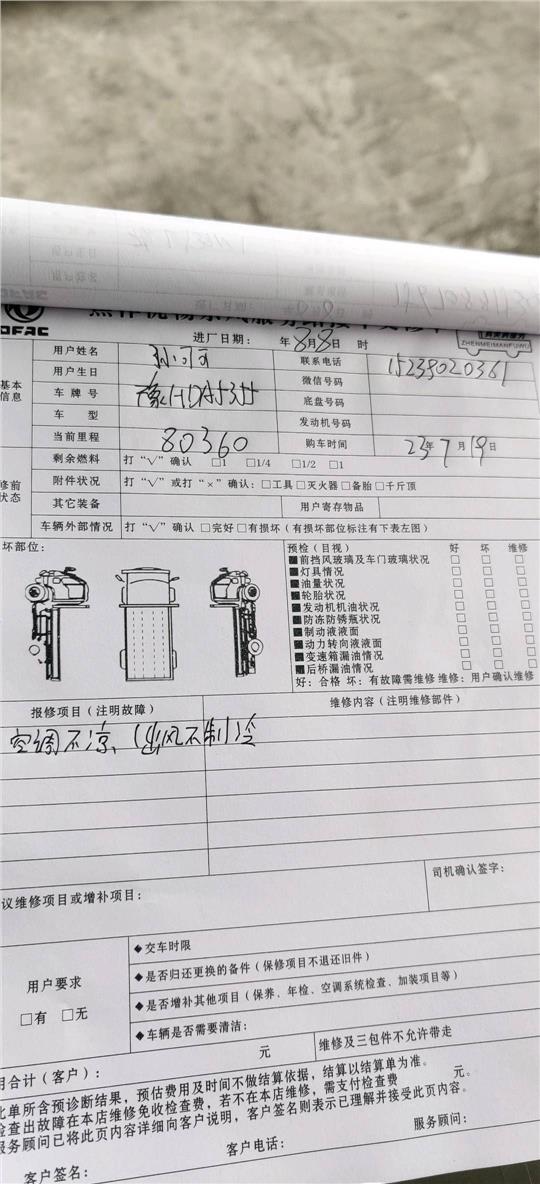 DFAC
ZHENMEIMANFUWU
进厂日期： 年8月8日 时
用户姓名 联系电话 15239020361
用户生日 微信号码
基本信息
车牌号 豫HDA5355 底盘号码
车型 发动机号码
当前里程 80360 购车时间 23年7月19日
剩余燃料 打“√”确认 □1 □1/4 □1/2 □1
修前状态
附件状况 打“√”或打“×”确认：□工具□灭火器□备胎□千斤顶
其它装备 用户寄存物品
车辆外部情况 打“√”确认 □完好□有损坏（有损坏部位标注有下表左图）
坏部位：
预检（目视） 好 坏 维修
■前挡风玻璃及车门玻璃状况 □ □ □
■灯具情况 □ □ □
■油量状况 □ □ □
■轮胎状况 □ □ □
■发动机机油状况 □ □ □
■防冻防锈瓶状况 □ □ □
■制动液液面 □ □ □
■动力转向液液面 □ □ □
■变速箱漏油情况 □ □ □
■后桥漏油情况 □ □ □
好：合格 坏：有故障需维修 维修：用户确认维修
报修项目（注明故障） 维修内容（注明维修部件）
空调不凉、（出风不制冷
议维修项目或增补项目：
司机确认签字：
用户要求
□有 □无
◆交车时限
◆是否归还更换的备件（保修项目不退还旧件）
◆是否增补其他项目（保养、年检、空调系统检查、加装项目等）
◆车辆是否需要清洁：
用合计（客户）： 元 维修及三包件不允许带走
此单所含预诊断结果，预估费用及时间不做结算依据，结算以结算单为准。
检查出故障在本店维修免收检查费，若不在本店维修，需支付检查费 元。
服务顾问已将此页内容详细向客户说明，客户签名则表示已理解并接受此页内容。
客户签名： 客户电话： 服务顾问：